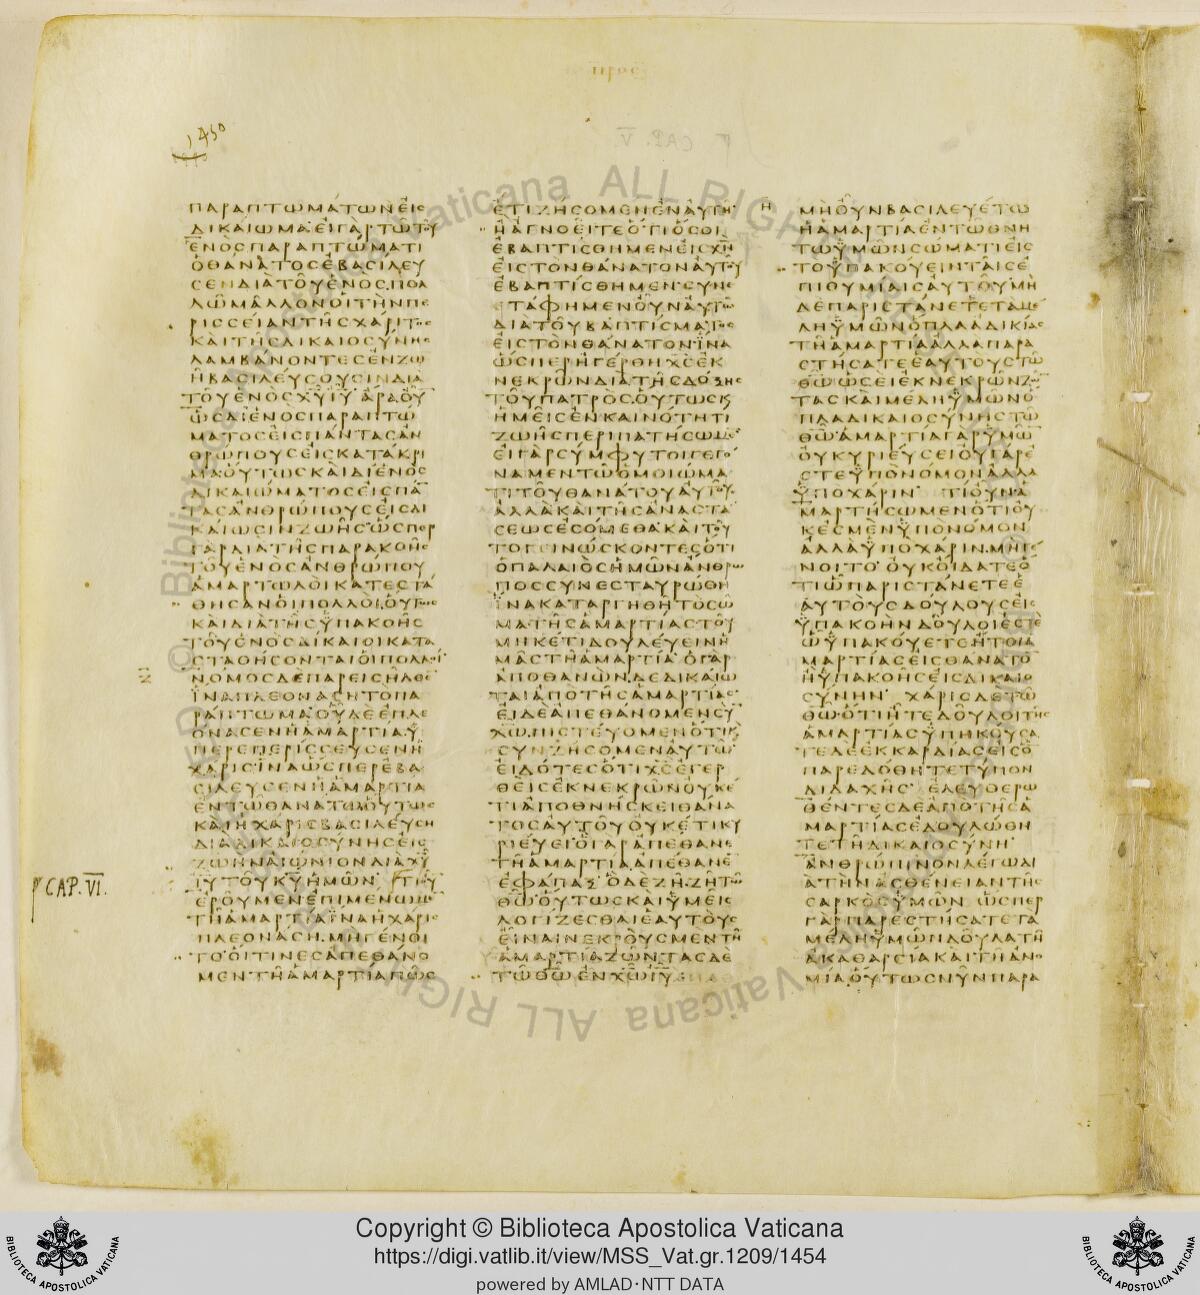 1450
ΠΑΡΑΠΤΩΜΑΤΩΝΕΙΣ
ΔΙΚΑΙΩΜΑΕΙΓΑΡΤΩΤΟΥ
ΕΝΟΣΠΑΡΑΠΤΩΜΑΤΙ
ΟΘΑΝΑΤΟΣΕΒΑΣΙΛΕΥ
ΣΕΝΔΙΑΤΟΥΕΝΟΣΠΟΛ
ΛΩΜΑΛΛΟΝΟΙΤΗΝΠΕ
ΡΙΣΣΕΙΑΝΤΗΣΧΑΡΙΤΟΣ
ΚΑΙΤΗΣΔΙΚΑΙΟΣΥΝΗΣ
ΛΑΜΒΑΝΟΝΤΕΣΕΝΖΩ
ΗΒΑΣΙΛΕΥΣΟΥΣΙΝΔΙΑ
ΤΟΥΕΝΟΣΧΥΙΥ ΑΡΑΟΥ
ΩΣΔΙΕΝΟΣΠΑΡΑΠΤΩ
ΜΑΤΟΣΕΙΣΠΑΝΤΑΣΑΝ
ΘΡΩΠΟΥΣΕΙΣΚΑΤΑΚΡΙ
ΜΑΟΥΤΩΣΚΑΙΔΙΕΝΟΣ
ΔΙΚΑΙΩΜΑΤΟΣΕΙΣΠΑ
ΤΑΣΑΝΘΡΩΠΟΥΣΕΙΣΔΙ
ΚΑΙΩΣΙΝΖΩΗΣΩΣΠΕΡ
ΓΑΡΔΙΑΤΗΣΠΑΡΑΚΟΗΣ
ΤΟΥΕΝΟΣΑΝΘΡΩΠΟΥ
ΑΜΑΡΤΩΛΟΙΚΑΤΕΣΤΑ
ΘΗΣΑΝΟΙΠΟΛΛΟΙΟΥΤΩΣ
ΚΑΙΔΙΑΤΗΣΥΠΑΚΟΗΣ
ΤΟΥΕΝΟΣΔΙΚΑΙΟΙΚΑΤΑ
ΣΤΑΘΗΣΟΝΤΑΙΟΙΠΟΛΛΟΙ
ΝΟΜΟΣΔΕΠΑΡΕΙΣΗΛΘΕ
ΙΝΑΠΛΕΟΝΑΣΗΤΟΠΑ
ΡΑΠΤΩΜΑΟΥΔΕΕΠΛΕ
ΟΝΑΣΕΝΗΑΜΑΡΤΙΑΥ
ΠΕΡΕΠΕΡΙΣΣΕΥΣΕΝΗ
ΧΑΡΙΣΙΝΑΩΣΠΕΡΕΒΑ
ΣΙΛΕΥΣΕΝΗΑΜΑΡΤΙΑ
ΕΝΤΩΘΑΝΑΤΩΟΥΤΩΣ
ΚΑΙΗΧΑΡΙΣΒΑΣΙΛΕΥΣΗ
ΔΙΑΔΙΚΑΙΟΣΥΝΗΣΕΙΣ
ΖΩΗΝΑΙΩΝΙΟΝΔΙΑΧΥ
ΙΥΤΟΥΚΥΗΜΩΝ ΤΙΟΥ
CAP. VI.
ΕΡΟΥΜΕΝΕΠΙΜΕΝΩΜΕ
ΤΗΑΜΑΡΤΙΑΙΝΑΗΧΑΡΙΣ
ΠΛΕΟΝΑΣΗ.ΜΗΓΕΝΟΙ
ΤΟΟΙΤΙΝΕΣΑΠΕΘΑΝΟ
ΜΕΝΤΗΑΜΑΡΤΙΑΠΩΣ
ΕΤΙΖΗΣΟΜΕΝΕΝΑΥΤΗ
ΗΑΓΝΟΕΙΤΕΟΤΙΟΣΟΙ
ΕΒΑΠΤΙΣΘΗΜΕΝΕΙΣΧΝ
ΕΙΣΤΟΝΘΑΝΑΤΟΝΑΥΤΟΥ
ΕΒΑΠΤΙΣΘΗΜΕΝΣΥΝΕ
ΤΑΦΗΜΕΝΟΥΝΑΥΤΩ
ΔΙΑΤΟΥΒΑΠΤΙΣΜΑΤΟΣ
ΕΙΣΤΟΝΘΑΝΑΤΟΝΙΝΑ
ΩΣΠΕΡΗΓΕΡΘΗΧΣΕΚ
ΝΕΚΡΩΝΔΙΑΤΗΣΔΟΞΗΣ
ΤΟΥΠΑΤΡΟΣ.ΟΥΤΩΣΚ
ΗΜΕΙΣΕΝΚΑΙΝΟΤΗΤΙ
ΖΩΗΣΠΕΡΙΠΑΤΗΣΩΜΕ
ΕΙΓΑΡΣΥΜΦΥΤΟΙΓΕΓΟ
ΝΑΜΕΝΤΩΟΜΟΙΩΜΑ
ΤΙΤΟΥΘΑΝΑΤΟΥΑΥΤΟΥ
ΑΛΛΑΚΑΙΤΗΣΑΝΑΣΤΑ
ΣΕΩΣΕΣΟΜΕΘΑΚΑΙΤΟΥ
ΤΟΓΕΙΝΩΣΚΟΝΤΕΣΟΤΙ
ΟΠΑΛΑΙΟΣΗΜΩΝΑΝΘΡΩ
ΠΟΣΣΥΝΕΣΤΑΥΡΩΘΗ
ΙΝΑΚΑΤΑΡΓΗΘΗΤΟΣΩ
ΜΑΤΗΣΑΜΑΡΤΙΑΣΤΟΥ
ΜΗΚΕΤΙΔΟΥΛΕΥΕΙΝΗ
ΜΑΣΤΗΑΜΑΡΤΙΑ ΟΓΑΡ
ΑΠΟΘΑΝΩΝΔΕΔΙΚΑΙΩ
ΤΑΙΑΠΟΤΗΣΑΜΑΡΤΙΑΣ
ΕΙΔΕΑΠΕΘΑΝΟΜΕΝΣΥ
ΧΩ.ΠΙΣΤΕΥΟΜΕΝΟΤΙΚ
ΣΥΝΖΗΣΟΜΕΝΑΥΤΩ
ΕΙΔΟΤΕΣΟΤΙΧΣΕΓΕΡ
ΘΕΙΣΕΚΝΕΚΡΩΝΟΥΚΕ
ΤΙΑΠΟΘΝΗΣΚΕΙΘΑΝΑ
ΤΟΣΑΥΤΟΥΟΥΚΕΤΙΚΥ
ΡΙΕΥΕΙΟΓΑΡΑΠΕΘΑΝΕ
ΤΗΑΜΑΡΤΙΑΑΠΕΘΑΝΕ
ΕΦΑΠΑΞ ΟΔΕΖΗ.ΖΗΤΩ
ΘΩΟΥΤΩΣΚΑΙΥΜΕΙΣ
ΛΟΓΙΖΕΣΘΑΙΕΑΥΤΟΥΣ
ΕΙΝΑΙΝΕΚΡΟΥΣΜΕΝΤΗ
ΑΜΑΡΤΙΑΖΩΝΤΑΣΔΕ
ΤΩΘΩΕΝΧΩΙΥ
Η
ΜΗΟΥΝΒΑΣΙΛΕΥΕΤΩ
ΗΑΜΑΡΤΙΑΕΝΤΩΘΝΗ
ΤΩΥΜΩΝΣΩΜΑΤΙΕΙΣ
ΤΟΥΠΑΚΟΥΕΙΝΤΑΙΣΕ
ΠΙΘΥΜΙΑΙΣΑΥΤΟΥΜΗ
ΔΕΠΑΡΙΣΤΑΝΕΤΕΤΑΜΕ
ΛΗΥΜΩΝΟΠΛΑΑΔΙΚΙΑΣ
ΤΗΑΜΑΡΤΙΑΑΛΛΑΠΑΡΑ
ΣΤΗΣΑΤΕΕΑΥΤΟΥΣΤΩ
ΘΩΩΣΕΙΕΚΝΕΚΡΩΝΖΩ
ΤΑΣΚΑΙΜΕΛΗΥΜΩΝΟ
ΠΛΑΔΙΚΑΙΟΣΥΝΗΣΤΩ
ΘΩΑΜΑΡΤΙΑΓΑΡΥΜΩ
ΟΥΚΥΡΙΕΥΣΕΙΟΥΓΑΡΕ
ΣΤΕΥΠΟΝΟΜΟΝΑΛΛΑ
ΥΠΟΧΑΡΙΝ ΤΙΟΥΝΑ
ΜΑΡΤΗΣΩΜΕΝΟΤΙΟΥ
ΚΕΣΜΕΝΥΠΟΝΟΜΟΝ
ΑΛΛΑΥΠΟΧΑΡΙΝ.ΜΗΓΕ
ΝΟΙΤΟ ΟΥΚΟΙΔΑΤΕΟ
ΤΙΩΠΑΡΙΣΤΑΝΕΤΕΕ
ΑΥΤΟΥΣΔΟΥΛΟΥΣΕΙΣ
ΥΠΑΚΟΗΝΔΟΥΛΟΙΕΣΤΕ
ΩΥΠΑΚΟΥΕΤΕΗΤΟΙΑ
ΜΑΡΤΙΑΣΕΙΣΘΑΝΑΤΟ
ΗΥΠΑΚΟΗΣΕΙΣΔΙΚΑΙΟ
ΣΥΝΗΝ ΧΑΡΙΣΔΕΤΩ
ΘΩΟΤΙΗΤΕΔΟΥΛΟΙΤΗΣ
ΑΜΑΡΤΙΑΣΥΠΗΚΟΥΣΑ
ΤΕΔΕΕΚΚΑΡΔΙΑΣΕΙΣΟ
ΠΑΡΕΔΟΘΗΤΕΤΥΠΟΝ
ΔΙΔΑΧΗΣ ΕΛΕΥΘΕΡΩ
ΘΕΝΤΕΣΔΕΑΠΟΤΗΣΑ
ΜΑΡΤΙΑΣΕΔΟΥΛΩΘΗ
ΤΕΤΗΔΙΚΑΙΟΣΥΝΗ
ΑΝΘΡΩΠΙΝΟΝΛΕΓΩΔΙ
ΑΤΗΝΑΣΘΕΝΕΙΑΝΤΗΣ
ΣΑΡΚΟΣΥΜΩΝ ΩΣΠΕΡ
ΓΑΡΠΑΡΕΣΤΗΣΑΤΕΤΑ
ΜΕΛΗΥΜΩΝΔΟΥΛΑΤΗ
ΑΚΑΘΑΡΣΙΑΚΑΙΤΗΑΝΟ
ΜΙΑ.ΟΥΤΩΣΝΥΝΠΑΡΑ
Copyright © Biblioteca Apostolica Vaticana
https://digi.vatlib.it/view/MSS_Vat.gr.1209/1454
powered by AMLAD·NTT DATA
BIBLIOTECA APOSTOLICA VATICANA
BIBLIOTECA APOSTOLICA VATICANA